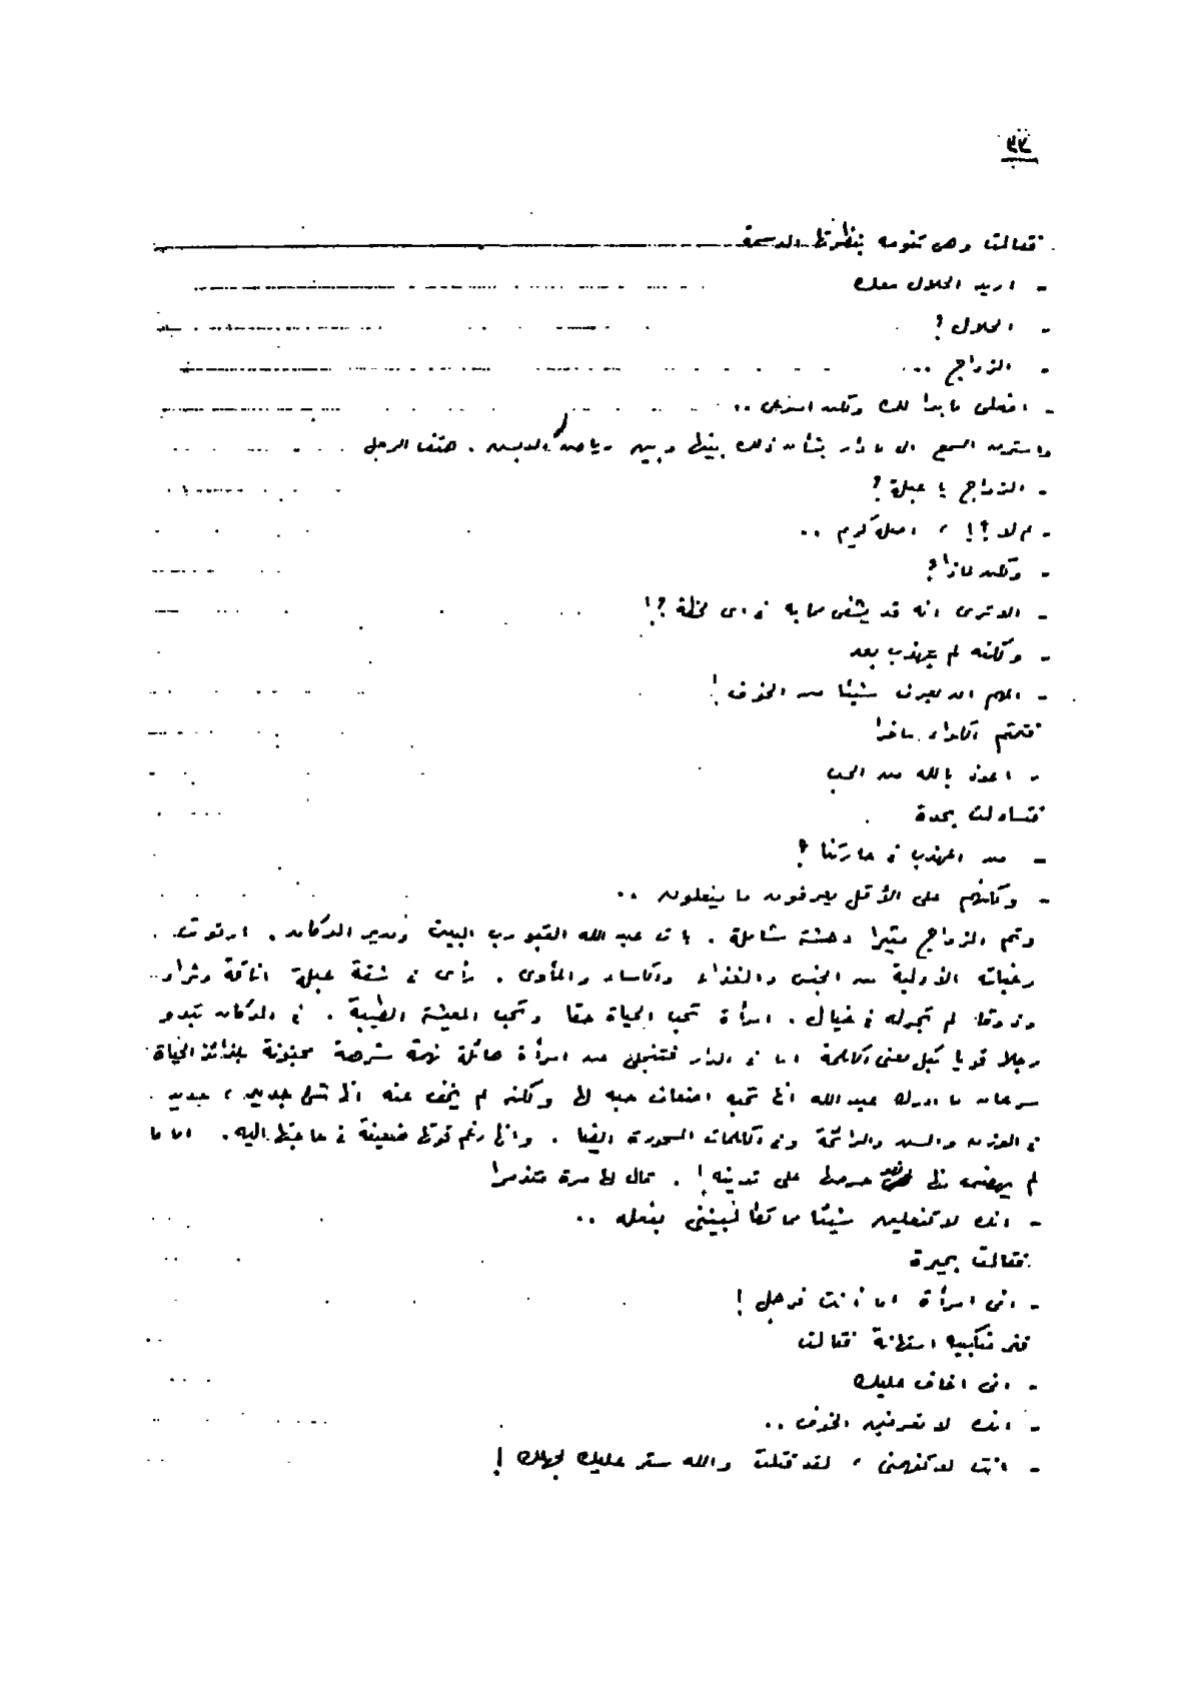 ٣٣
فقالت وهى تنومه بنظرتها الدسمة
- اريد الحلال معك
- الحلال ؟
- الزواج ..
- افعلى ما بدا لك وكلمى اسرعى ..
واسترق السمع الى ما دار بشأن ذلك بينها وبين رياض الدبس . هتف الرجل
- الزواج يا عبلة ؟
- لم لا ؟! ، اصل كريم ..
- ولكن لماذا ؟
- الا ترى انه قد يشفى مما به فى اى لحظة ؟!
- ولكنه لم يهذب بعد
- المهم ان يعرف شيئا من الخوف !
فتمتم الدواء ساخرا
- اعوذ بالله من الحب
فتساءلت بحدة
- من المهذب فى حارتنا ؟
- ولكنهم على الأقل يعرفون ما يفعلون ..
وتم الزواج مثيرا دهشة شاملة . بات عبد الله القبو رب البيت ومدير الدكان . ارتوت
رغباته الأولية من الجنس والغذاء والكساء والمأوى . رأى فى شقة عبلة اناقة وثراء
وذوقا لم تجر له فى خيال . امرأة تحب الحياة حقا وتحب المعيشة الطيبة . فى الدكان تبدو
رجلا قويا بكل معنى الكلمة اما فى الدار فتنجلى عن امرأة هائلة نهمة شرهة مجنونة بلذائذ الحياة
سرعان ما ادرك عبد الله انها تحبه اضعاف حبه لها ولكنه لم يخف عنه انها شئ جديد ، جديد
فى الوزن والسن والرائحة وفى الكلمات المسحورة ايضا . وانها رغم قوتها ضعيفة فى حاجتها اليه . اما ما
لم يهضمه منها فهو حرصها على تدينه ! . قال لها مرة متذمرا
- انك لا تفعلين شيئا مما تطالبيننى بفعله ..
فقالت بحيرة
- انى امرأة اما انت فرجل !
فهز منكبيه استهانة فقالت
- انى اخاف عليك
- انك لا تعرفين الخوف ..
- انت لا تفهمنى ، لقد قتلت والله ستر عليك لجهلك !